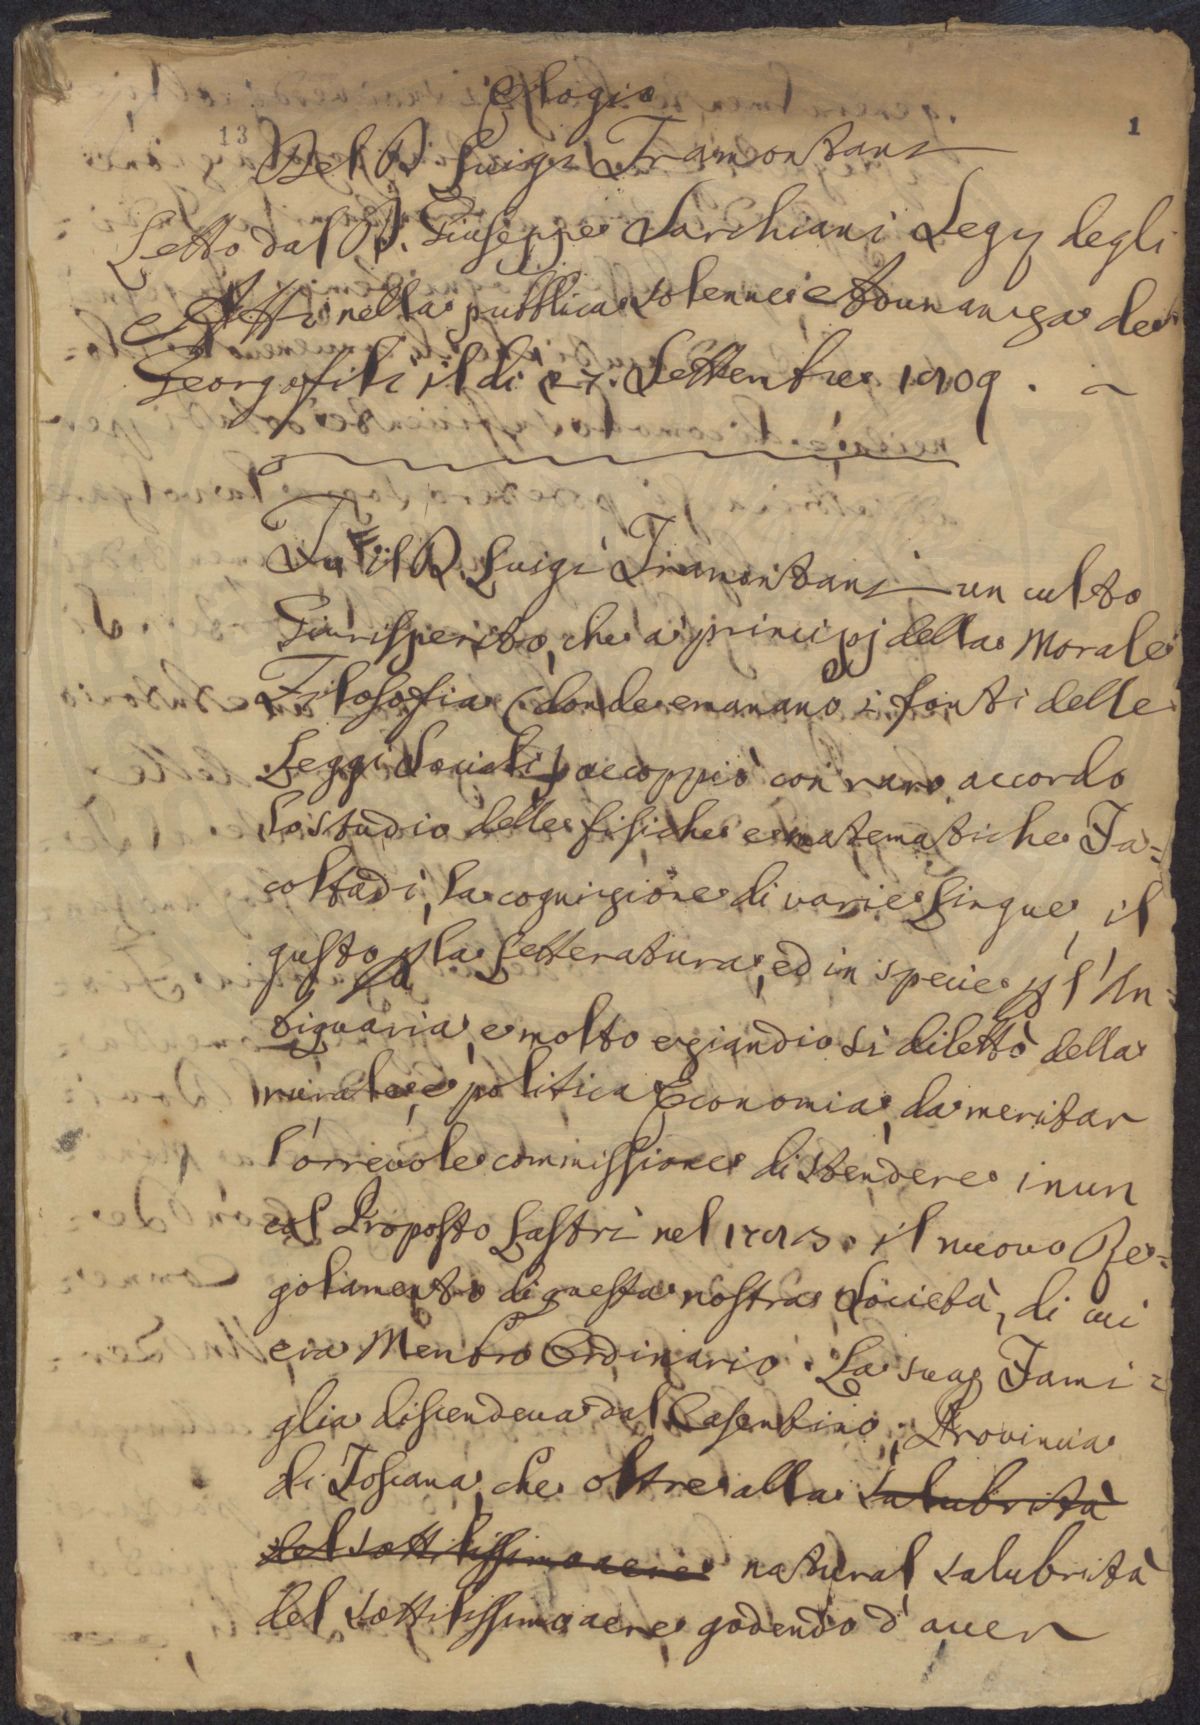 Elogio
13
1
Del D. Luigi Tramontani
Letto dal D. Giuseppe Sarchiani Seg degli
Atti nella pubblica solenne de
Georgofili il di 27. Settembre 1809.
Fu il D. Luigi Tramontani un culto
Giurisperito, che a' principj della Morale
Filosofia (donde emanano i fonti delle
Leggi Sociali) accoppiò con raro accordo
lo studio delle fisiche e matematiche Fa=
coltadi, la cognizione di varie Lingue, il
gusto p la Letteratura, ed in specie p l'An=
tiquaria, e molto eziandio si dilettò della
rurale, e politica Economia, da meritar
l'orrevole commissione di stendere in un
col Proposto Lastri nel 1783. il nuovo Re=
golamento di questa nostra Società, di cui
era Membro Ordinario. La sua Fami=
glia discendeva dal Casentino, Provincia
di Toscana, che oltre alla salubrità
del sottilissimo aere natural salubrità
del sottilissimo aere godendo d'aver